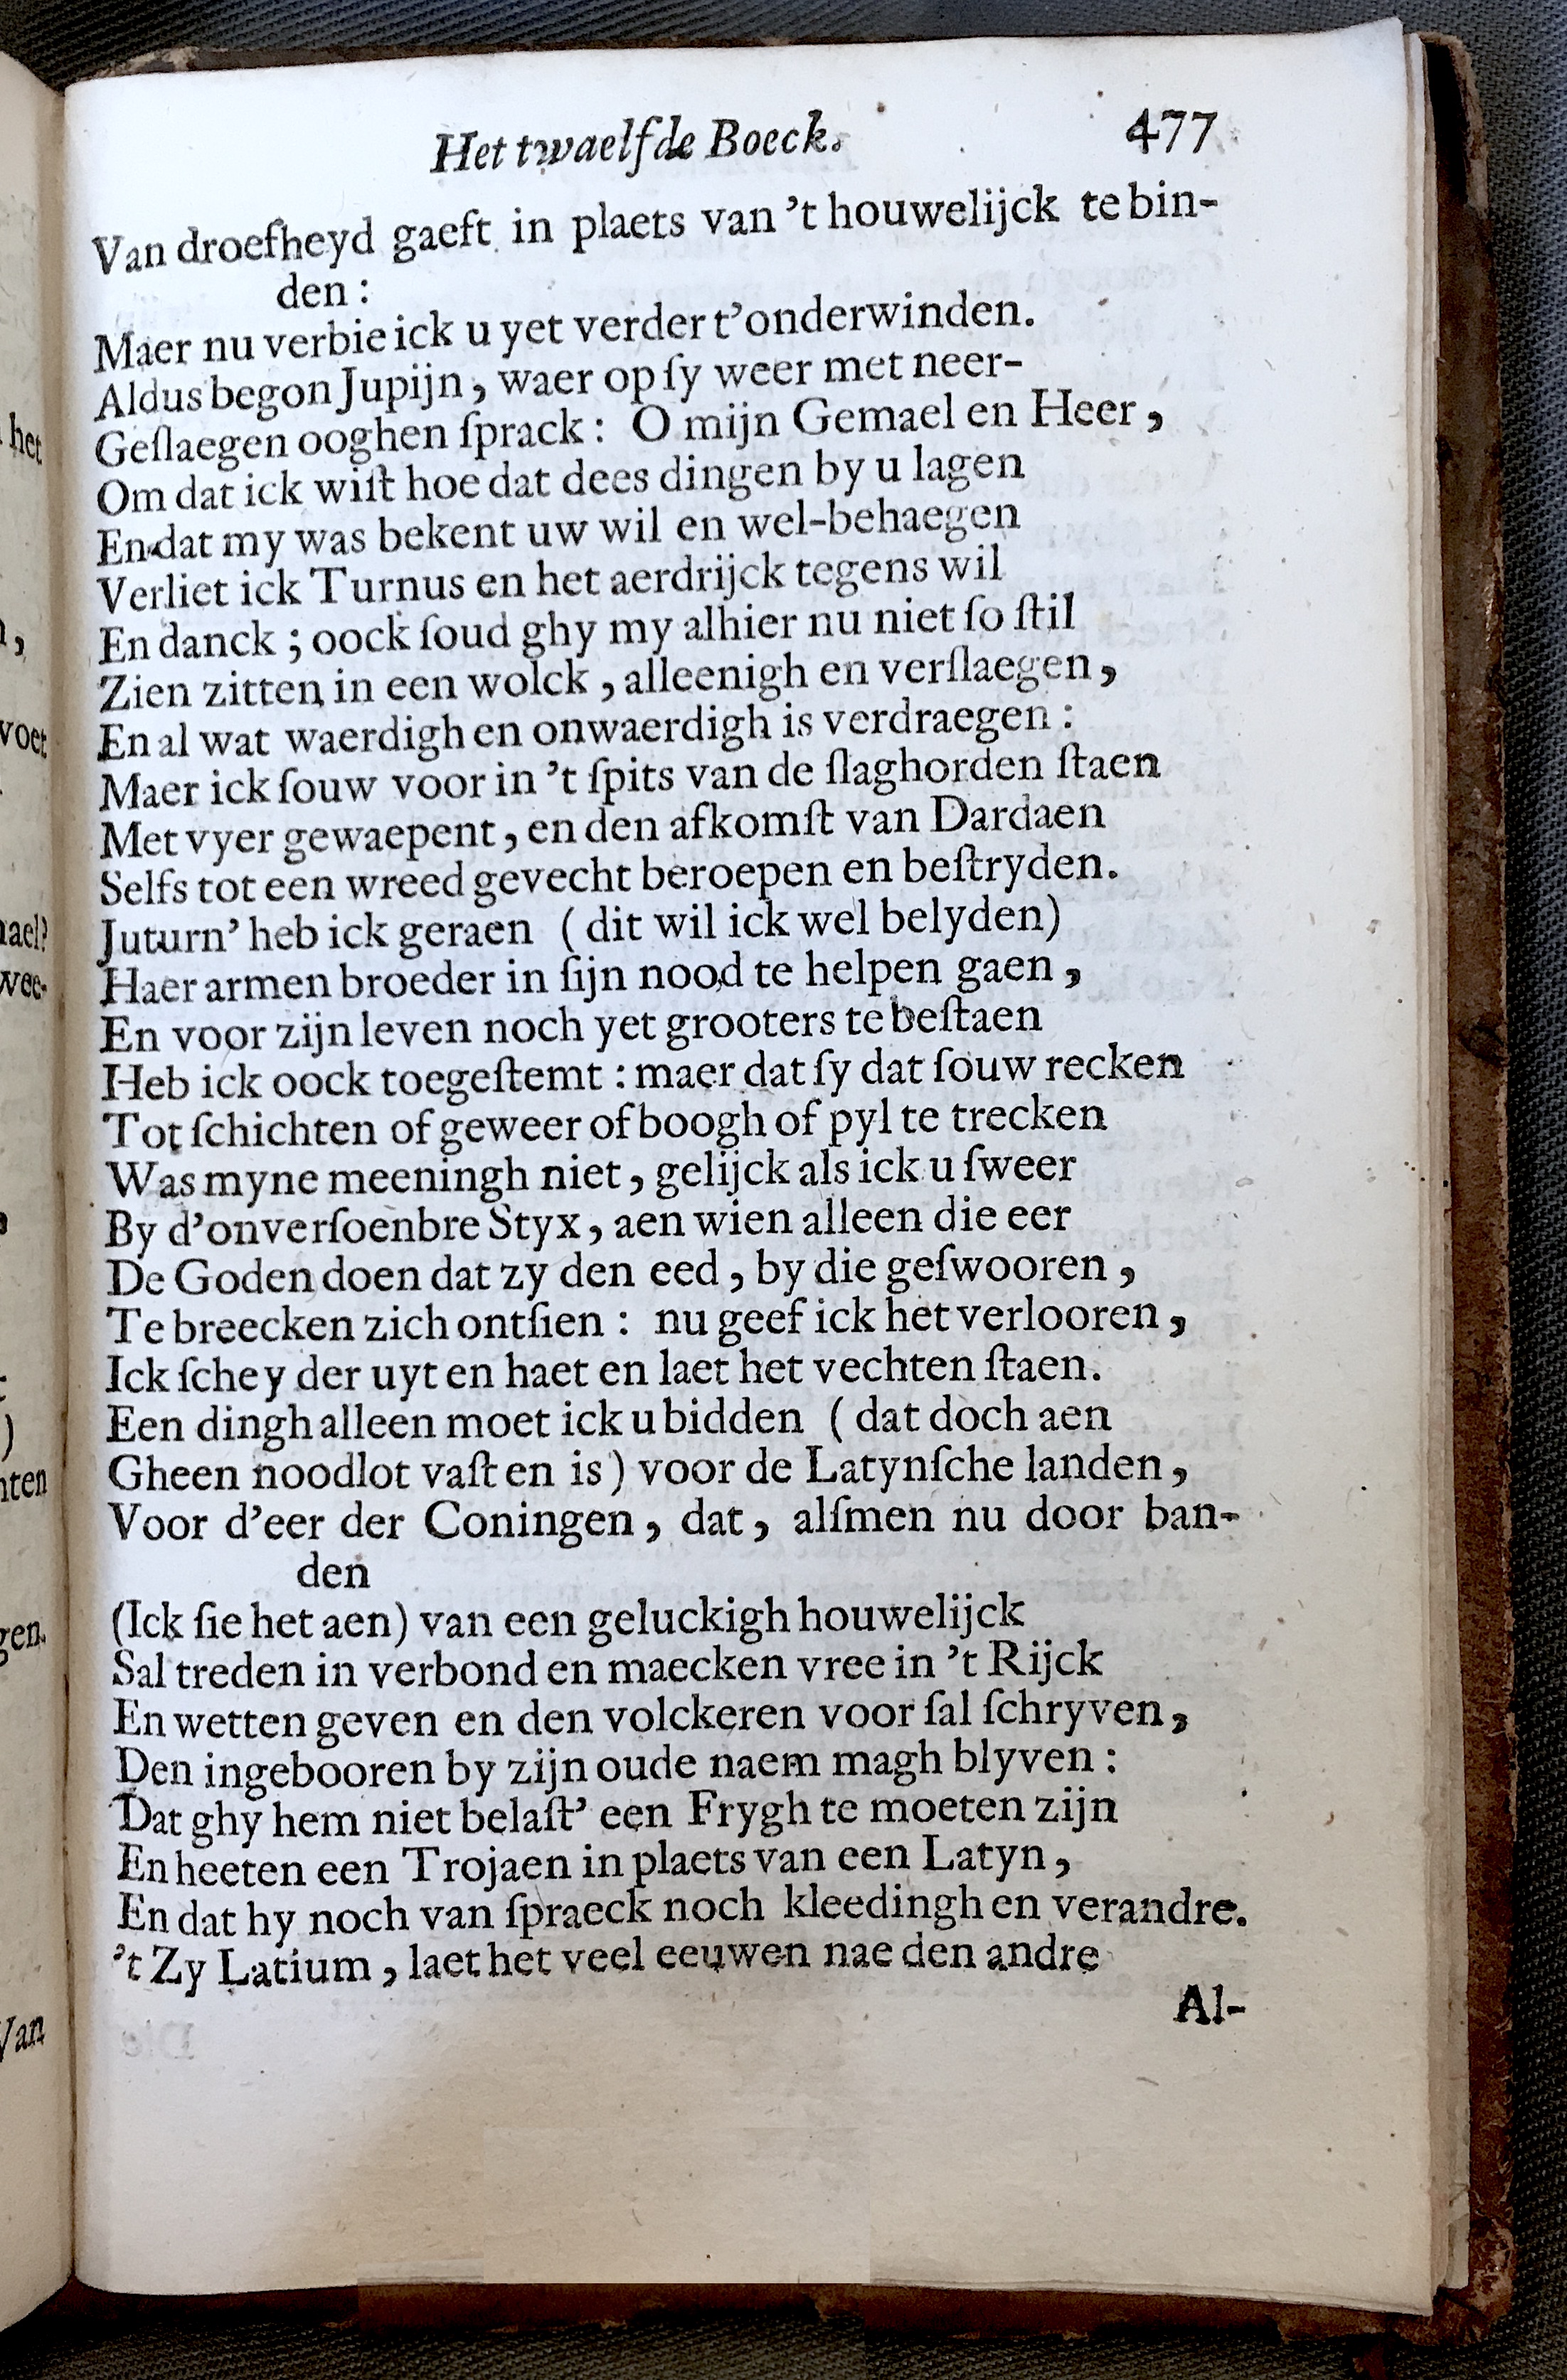 Het twaelfde Boeck. 477
Van droefheyd gaeft in plaets van 't houwelijck te bin-
den :
Maer nu verbie ick u yet verder t'onderwinden.
Aldus begon Jupijn, waer op ſy weer met neer-
Geſlaegen ooghen ſprack : O mijn Gemael en Heer,
Om dat ick wiſt hoe dat dees dingen by u lagen
En dat my was bekent uw wil en wel-behaegen
Verliet ick Turnus en het aerdrijck tegens wil
En danck ; oock ſoud ghy my alhier nu niet ſo ſtil
Zien zitten in een wolck, alleenigh en verſlaegen,
En al wat waerdigh en onwaerdigh is verdraegen :
Maer ick ſouw voor in 't ſpits van de ſlaghorden ſtaen
Met vyer gewaepent, en den afkomſt van Dardaen
Selfs tot een wreed gevecht beroepen en beſtryden.
Juturn' heb ick geraen ( dit wil ick wel belyden)
Haer armen broeder in ſijn nood te helpen gaen,
En voor zijn leven noch yet grooters te beſtaen
Heb ick oock toegeſtemt : maer dat ſy dat ſouw recken
Tot ſchichten of geweer of boogh of pyl te trecken
Was myne meeningh niet, gelijck als ick u ſweer
By d'onverſoenbre Styx, aen wien alleen die eer
De Goden doen dat zy den eed, by die geſwooren,
Te breecken zich ontſien : nu geef ick het verlooren,
Ick ſchey der uyt en haet en laet het vechten ſtaen.
Een dingh alleen moet ick u bidden ( dat doch aen
Gheen noodlot vaſt en is) voor de Latynſche landen,
Voor d'eer der Coningen, dat, alſmen nu door ban-
den
(Ick ſie het aen) van een geluckigh houwelijck
Sal treden in verbond en maecken vree in 't Rijck
En wetten geven en den volckeren voor ſal ſchryven,
Den ingebooren by zijn oude naem magh blyven :
Dat ghy hem niet belaſt' een Frygh te moeten zijn
En heeten een Trojaen in plaets van een Latyn,
En dat hy noch van ſpraeck noch kleedingh en verandre.
't Zy Latium, laet het veel eeuwen nae den andre
Al-
het
voet
Van